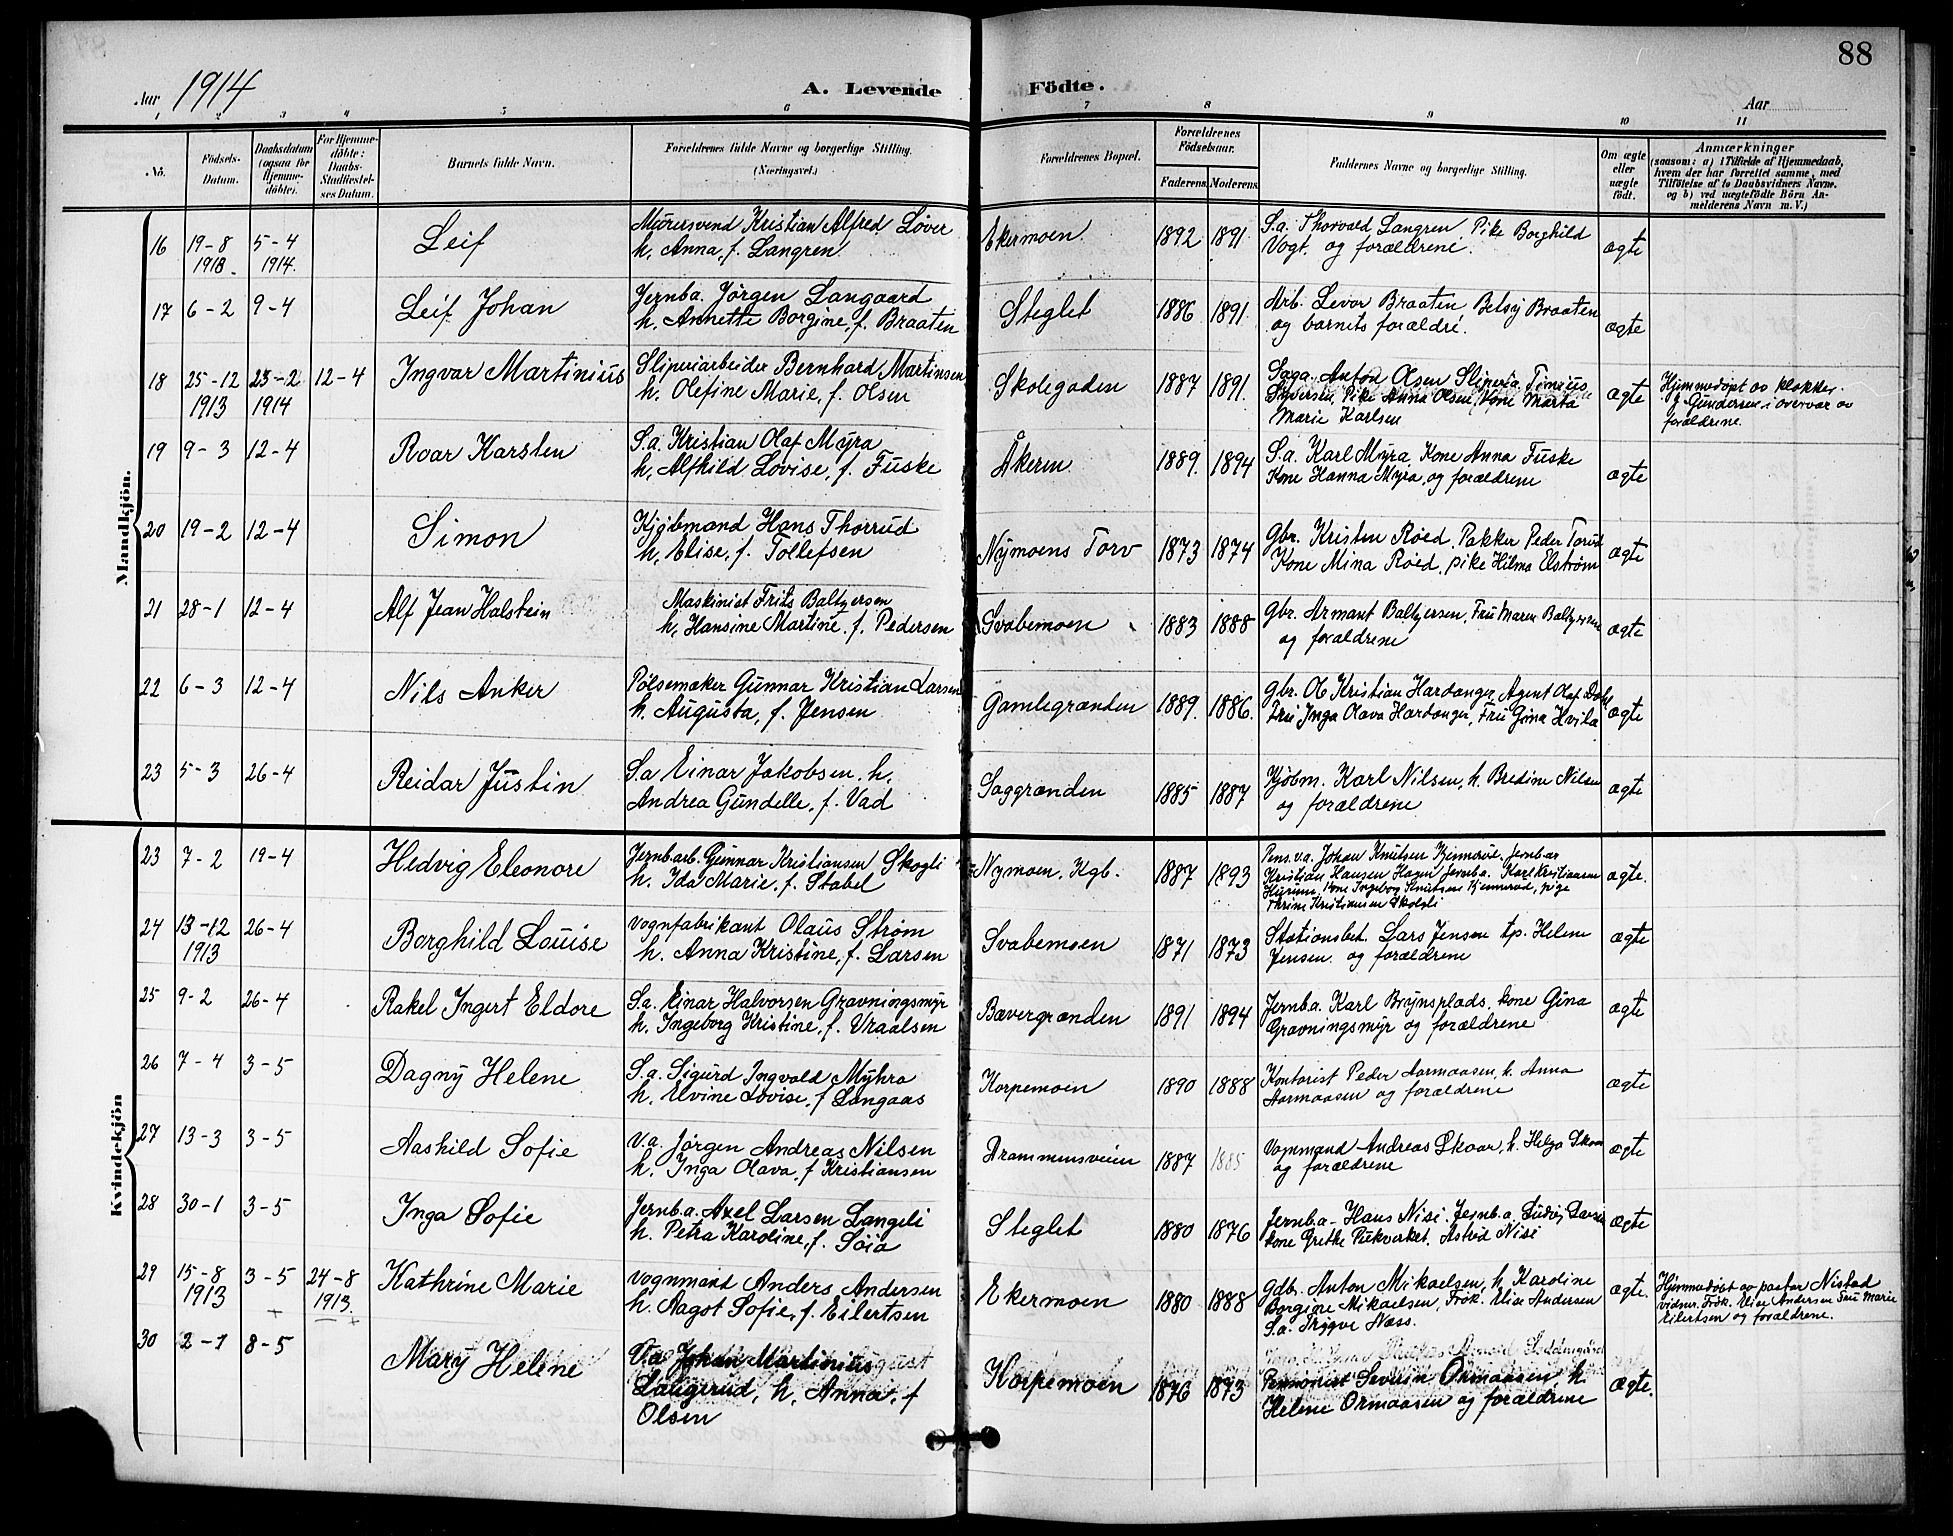 88
Aar 1914
A. Levende Födte.
Aar
1 2 3 4 5 6 7 8 9 10 11
No.
Födsels-Datum.
Daabsdatum (ogsaa for Hjemme-döbte).
For Hjemme-döbte: Daabs-Stadfæstel-ses Datum.
Barnets fulde Navn.
Forældrenes fulde Navne og borgerlige Stilling. (Næringsvei.)
Forældrenes Bopæl.
Forældrenes Födselsaar.
Faderens. Moderens.
Faddernes Navne og borgerlige Stilling.
Om ægte eller uægte födt.
Anmærkninger
(saasom: a) i Tilfælde af Hjemmedaab, hvem der har forrettet samme, med Tilföielse af to Daabsvidners Navne. og b) ved uægtefödte Börn An-melderens Navn m. V.)
Mandkjön.
16 19-8 1913. 5-4 1914. Leif Murersvend Kristian Alfred Løver h. Anna, f. Langren. Ekermoen. 1892 1891 S.a. Thorvald Langren. Pike Borghild Vogt. og forældrene. ægte
17 6-2 9-4 Leif Johan Jernba. Jørgen Langaard h. Annette Borgine, f. Braaten Steglet 1886 1891 Arb. Levor Braaten, Betsy Braaten og barnets forældre. ægte
18 25-12 1913 23-2 1914 12-4 Ingvar Martinius Sliperiarbeider Bernhard Martinsen h. Olefine Marie, f. Olsen Skolegaden 1887 1891 Anton Olsen Pike Anna Olsen, Kone Marta Marie Karlsen ægte Hjemmedøpt av klokker Gundersen i overvær av forældrene.
19 9-3 12-4 Roar Karsten S.a. Kristian Olaf Myra h. Alfhild Lovise, f. Fuske Åkeren 1889. 1894 S.a. Karl Myra, Kone Anna Fuske Kone Hanna Myra, og forældrene ægte
20 19-2 12-4 Simon Kjøbmand Hans Thorrud h, Elise, f. Tollefsen Nymoens Torv 1873 1874 Gbr. Kristen Røed, Pakker Peder Torud Kone Mina Røed, pike Hilma Elstrøm ægte
21 28-1 12-4 Alf Jean Halstein Maskinist Frits Baltzersen h, Hansine Martine, f. Pedersen Svabemoen 1883 1888 Gbr. Armant Baltzersen, Fru Maren Baltzersen og forældrene ægte
22 6-3 12-4 Nils Anker Pølsemaker Gunnar Kristian Larsen h. Augusta, f. Jensen Gamlegrænden 1889. 1886. Gbr. Ole Kristian Hardanger, Agent Olaf Fru Inga Olava Hardanger, Fru Gina Hvila ægte
23 5-3 26-4 Reidar Justin S.a Einar Jakobsen. h. Andrea Gundelle, f. Vad Saggrænden 1885 1887 Kjøbm. Karl Nilsen, h. Bredine Nilsen og forældrene ægte
Kvindekjön
23 7-2 19-4 Hedvig Eleonore Jernbarb. Gunnar Kristiansen Skogli h. Ida Marie, f. Stabel Nymoen, Kgb. 1887 1893 Pens. v.a. Johan Knutsen Jernbar Kristian Hansen Hagen Jernba. Karl Kristiansen Kone Ingeborg Knutsen pige Thrine Kristiansen Skogli ægte.
24 13-12 1913 26-4 Borghild Louise Vognfabrikant Olaus Strøm h. Anna Kristine, f. Larsen Svabemoen 1871 1873 Stationsbet. Lars Jensen tp. Helene Jensen og forældrene ægte
25 9-2 26-4 Rakel Ingert Eldore S.a. Einar Halvorsen Gravningsmyr h. Ingeborg Kristine, f. Vraalsen Bævergrænden 1891 1894 Jernba. Karl Brynsplads, kone Gina Gravningsmyr og forældrene ægte
26 7-4 3-5 Dagny Helene S.a. Sigurd Ingvald Myhra h. Elvine Lovise, f Langaas Korpemoen 1890 1888 Kontorist Peder Aarmaasen, h. Anna Aarmaasen og forældrene ægte
27 13-3 3-5 Aashild Sofie V.a. Jørgen Andreas Nilsen h. Inga Olava, f Kristiansen Drammensveien 1887 1885 Vognmand Andreas Skaar, h. Helga Skaar og forældrene ægte
28 30-1 3-5 Inga Sofie Jernb.a. Axel Larsen Langeli h. Petra Karoline, f. Søia Steglet 1880 1876 Jernb.a- Hans Nisi. Jernb.a Ludvig Larsen kone Grethe Pukverket. Astrid Nisi ægte
29 15-8 1913 3-5 24-8 1913. Kathrine Marie Vognmand Anders Andersen h. Aagot Sofie, f. Eilertsen Ekermoen 1880 1888 Gdb. Anton Mikaelsen, h. Karoline Borgine Mikaelsen, Frøk. Elise Andersen S.a. Trygve Næss. ægte. Hjemmedøpt av pastor Nistad vidner. Frøk. Elise Andersen Fru Marie Eilertsen og forældrene.
30 2-1 8-5 Mary Helene V.a Johan Martinius Laugerud, h. Anna, f Olsen Korpemoen 1876 1873 Pensionist Severin Ormaasen h. Helene Ormaasen og forældrene ægte.